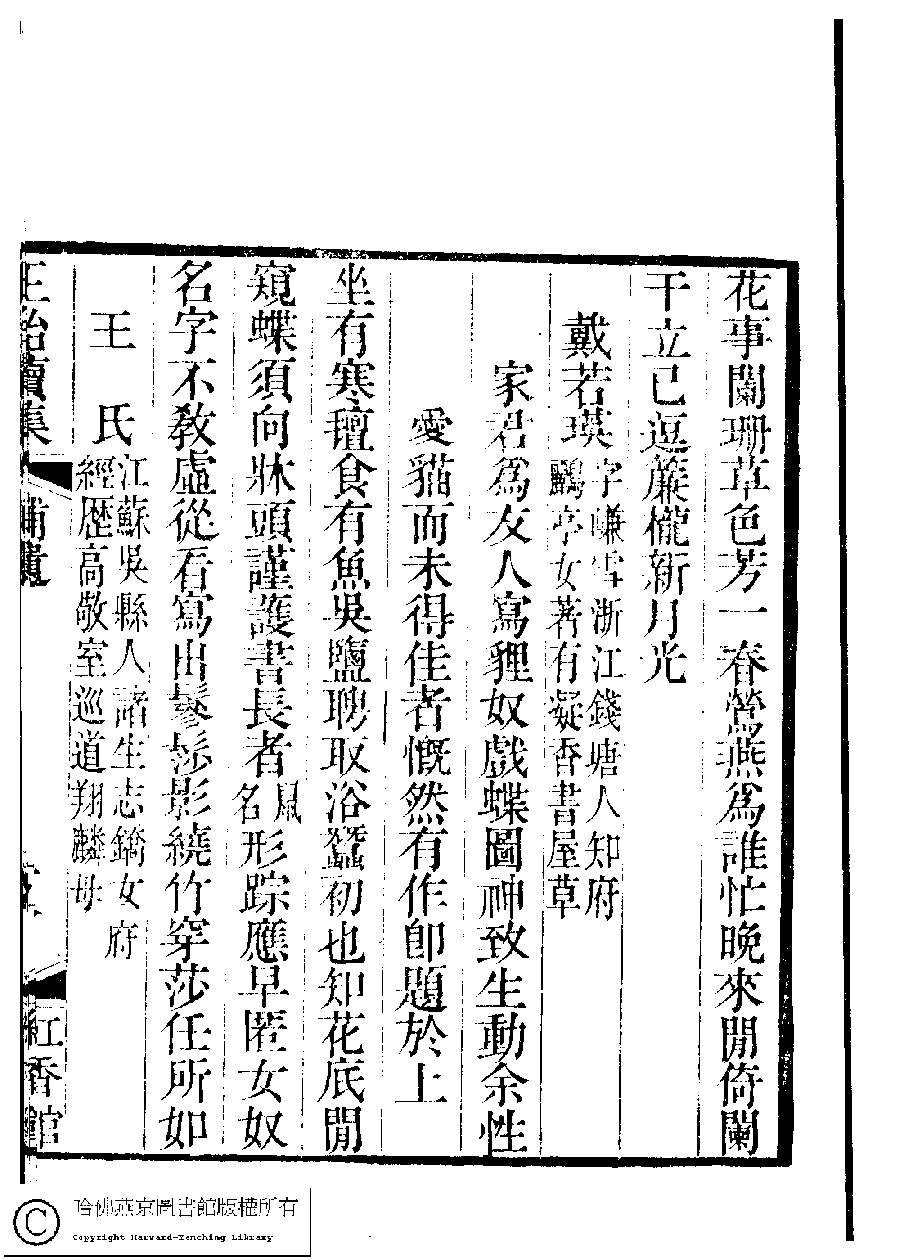 花事闌珊草色芳一春鶯燕爲誰忙晚來閒倚闌
干立已逗簾櫳新月光
戴若瑛 字嗛雪浙江錢塘人知府
鷗亭女著有凝香書屋草
家君爲友人寫貍奴戲蝶圖神致生動余性
愛貓而未得佳者慨然有作卽題於上
坐有寒氊食有魚吳鹽聘取浴蠶初也知花底閒
窺蝶須向牀頭謹護書長者鼠名形踪應早匿女奴
名字不教虛從看寫出鬖髿影繞竹穿莎任所如
王氏 江蘇吳縣人諸生志鏞女府
經歷高敬室巡道翔麟母
正始續集
補遺
紅香館
哈佛燕京圖書館版權所有
Copyright Harvard-Yenching Library